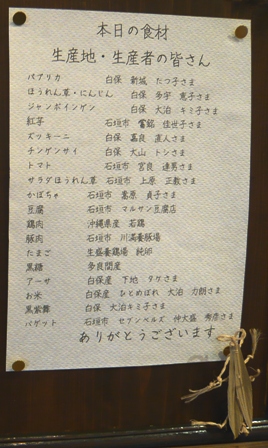 本日の食材
生産地・生産者の皆さん
パプリカ 白保 新城 たつ子さま
ほうれん草・にんじん 白保 多宇 恵子さま
ジャンボインゲン 白保 大泊 キミ子さま
紅芋 石垣市 佳世子さま
ズッキーニ 白保 嘉良 直人さま
チンゲンサイ 白保 大山 トシさま
トマト 石垣市 宮良 達男さま
サラダほうれん草 石垣市 上原 正教さま
かぼちゃ 石垣市 當原 貞子さま
豆腐 石垣市 マルサン豆腐店
鶏肉 沖縄県産 若鶏
豚肉 石垣市 川満養豚場
たまご 生盛養鶏場 純卵
黒糖 多良間産
アーサ 白保産 下地 タケさま
お米 白保産 ひとめぼれ 大泊 力朗さま
黒紫舞 白保 大泊キミ子さま
バゲット 石垣市 セブンベルズ 仲大盛 秀彦さま
ありがとうございます